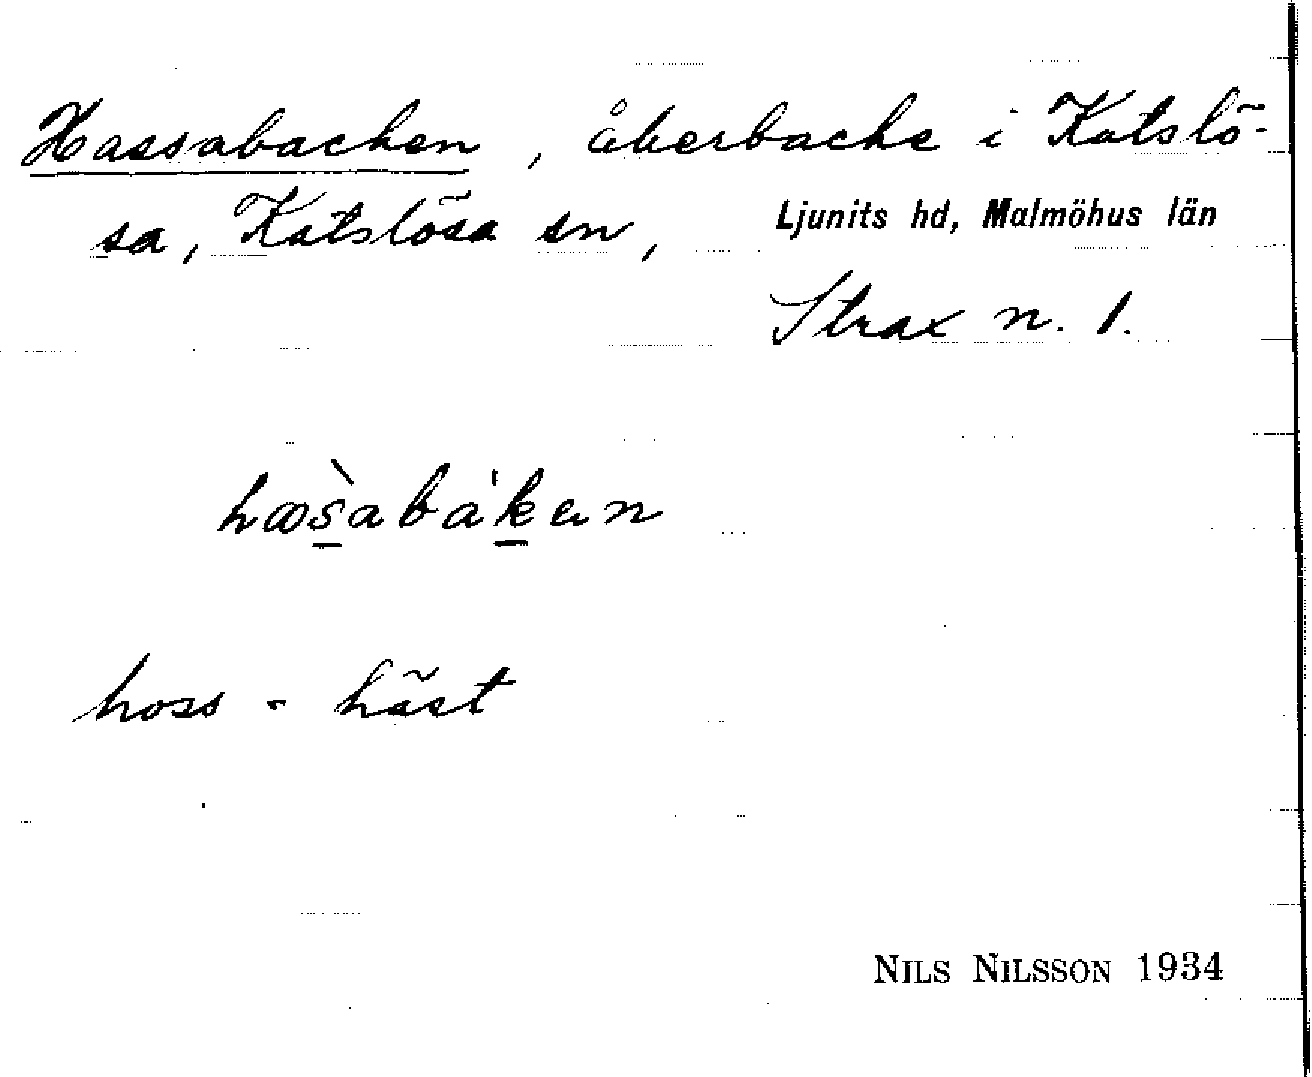 Hassabacken, åkerbacke i Katslö-
sa, Katslösa sn, Ljunits hd, Malmöhus län
Strax n. 1.
hoss = häst
NILS NILSSON 1934